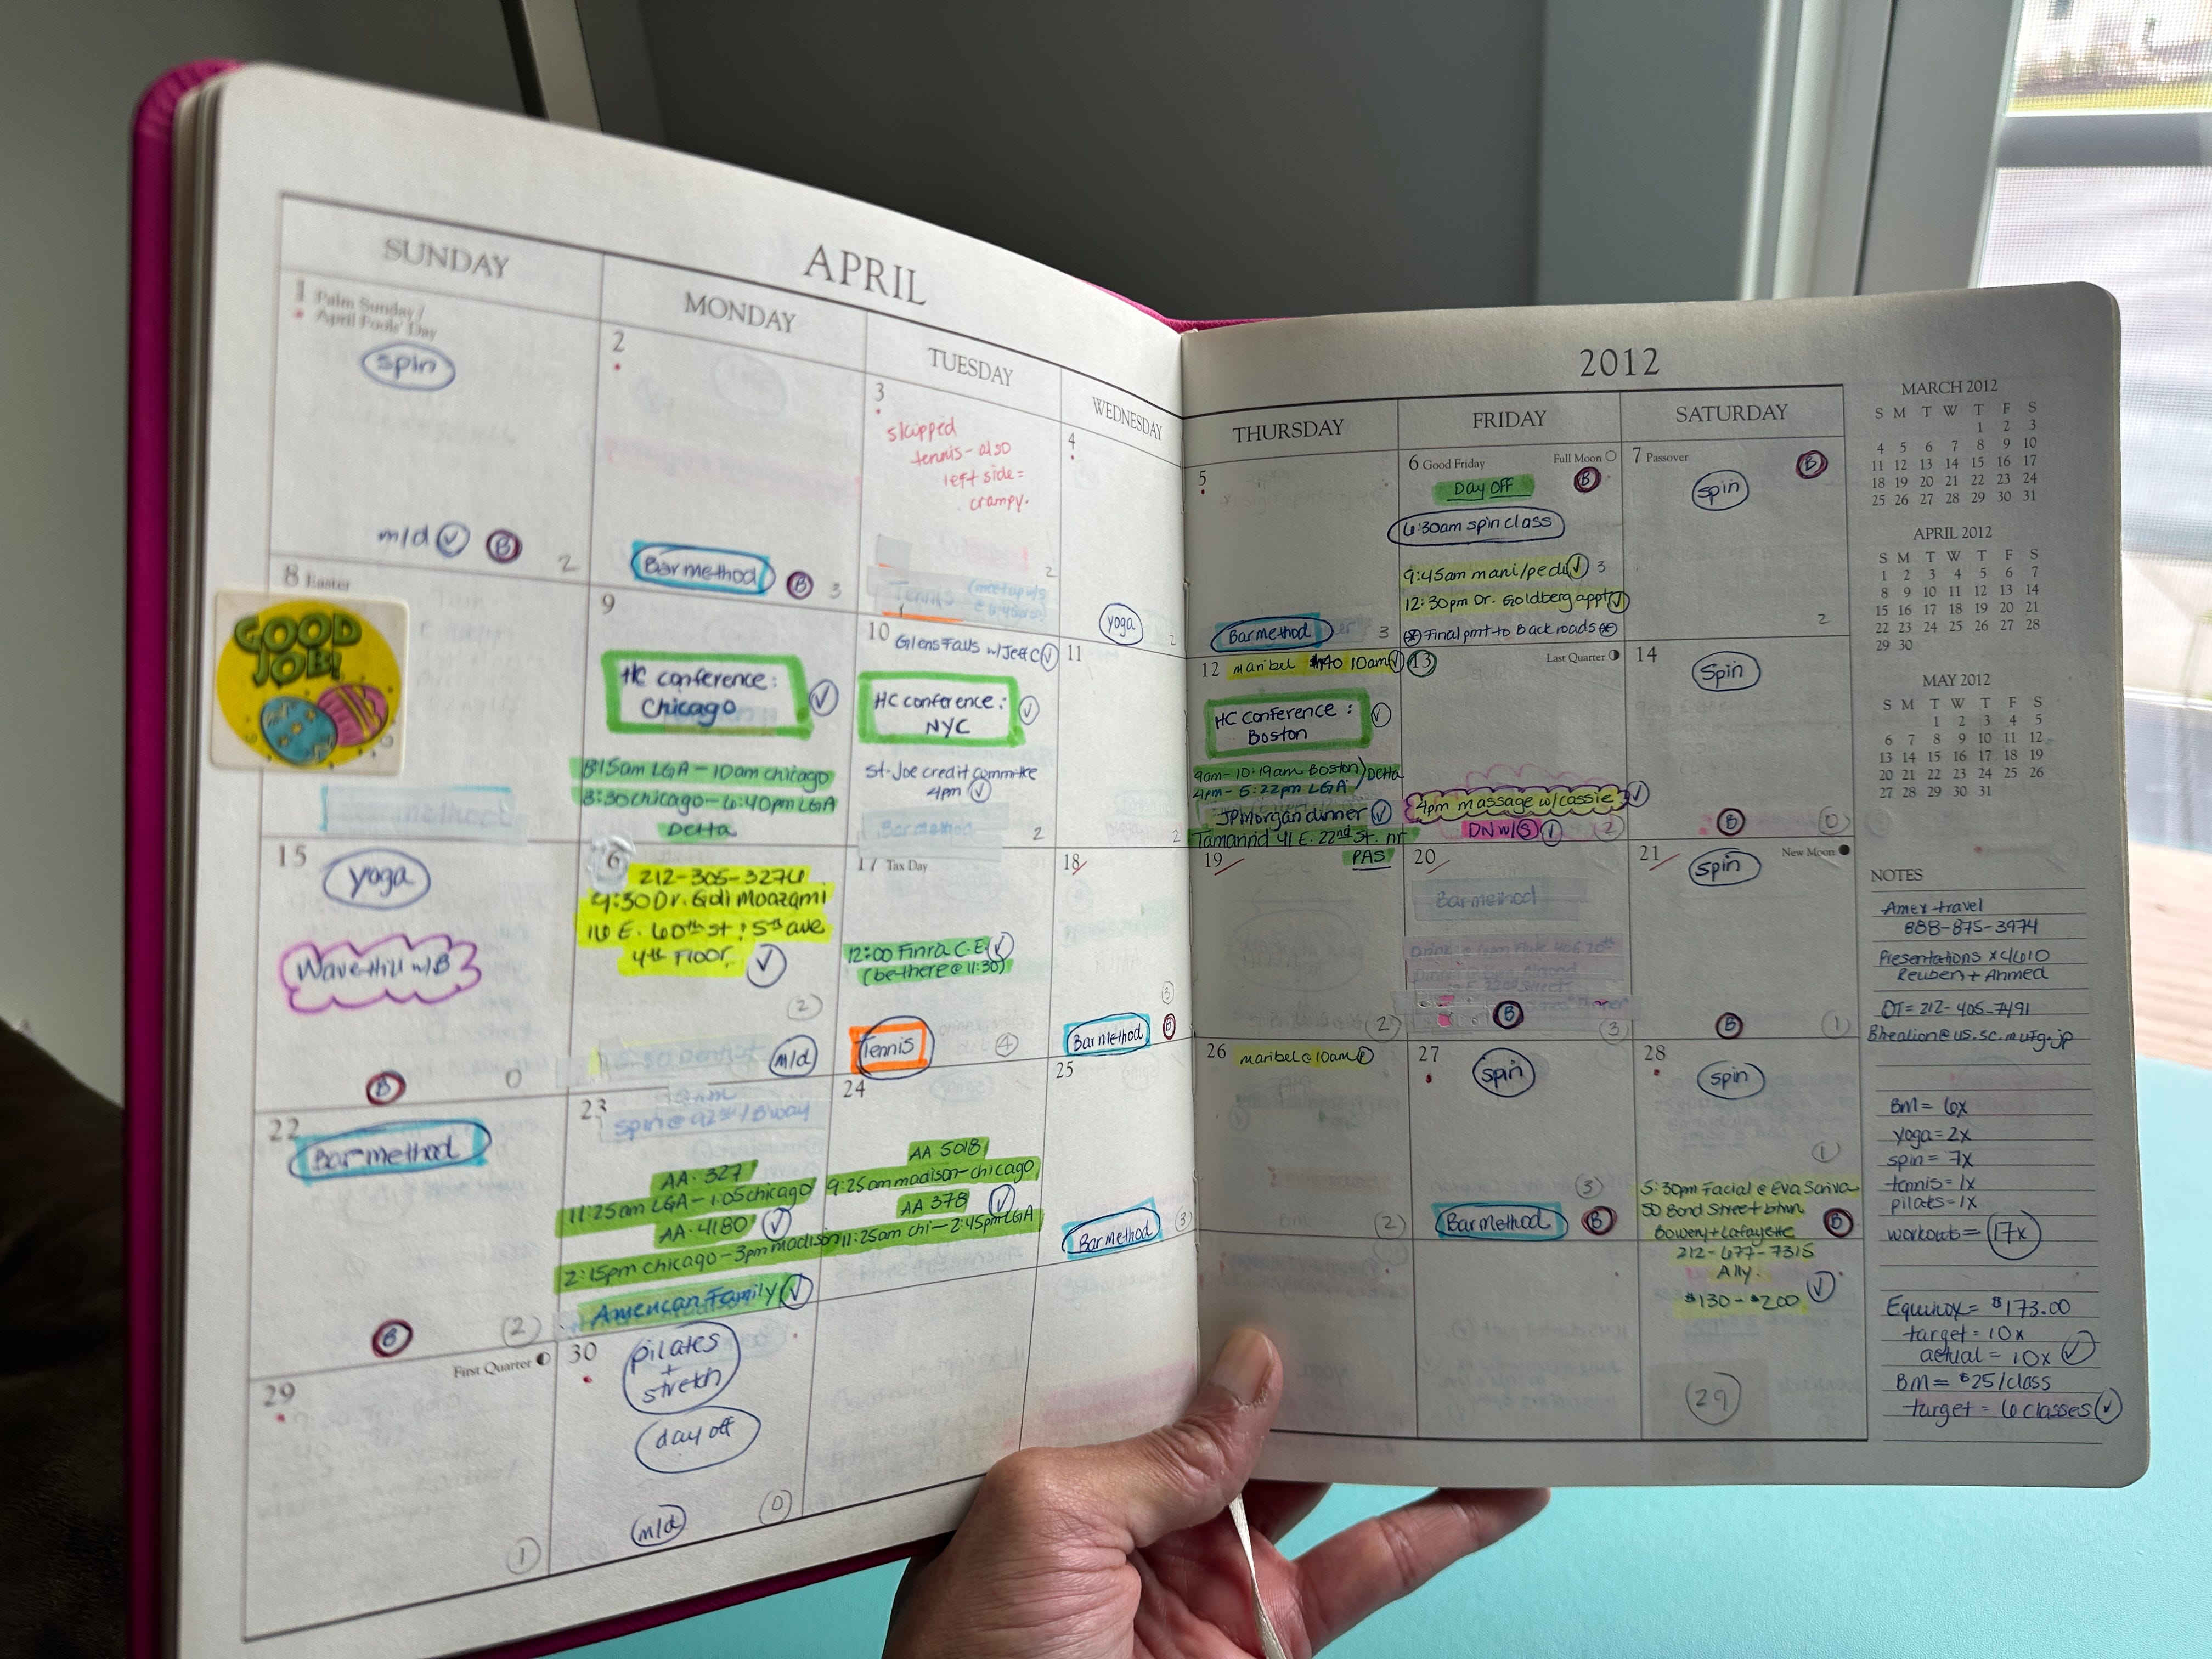 APRIL
2012
SUNDAY
MONDAY
TUESDAY
WEDNESDAY
THURSDAY
FRIDAY
SATURDAY
1 Palm Sunday /
April Fools' Day
spin
m/d
B
2
2
Bar method
B
3
3
skipped
tennis - also
left side =
crampy.
Tennis
2
4
yoga
2
5
Bar method
3
6 Good Friday
Full Moon
Day OFF
B
6:30am spin class
9:45am mani/pedi
3
12:30pm Dr. Goldberg appt
Final pmt to Backroads
7 Passover
spin
B
2
8 Easter
GOOD
JOB!
9
HC conference:
Chicago
8:15am LGA - 10am chicago
3:30chicago - 6:40pm LGA
Delta
10
Glens Falls w/Jeff C
HC conference:
NYC
St. Joe credit committee
4pm
Bar method
2
11
2
12
maribel $140 10am
HC conference:
Boston
9am - 10:19am Boston
Delta
4pm - 5:22pm LGA
JPMorgan dinner
Tamarind 41 E. 22nd St. nr
PAS
13
Last Quarter
4pm massage w/cassie
DN w/S
2
14
Spin
B
0
15
yoga
Wave Hill w/B
B
0
6
212-305-3276
9:30 Dr. Goli Moazami
16 E. 60th st : 5th ave
4th FLOOR
2
m/d
17 Tax Day
12:00 Finra C.E.
(be there @ 11:30)
Tennis
4
18
3
Bar method
B
19
2
20
Bar method
B
3
21
New Moon
spin
B
1
22
Bar method
B
2
23
spin @ 92nd / B'way
AA 327
11:25am LGA - 1:05 chicago
AA 4180
2:15pm chicago - 3pm madison
American Family
24
AA 5018
9:25am madison - chicago
AA 378
11:25am chi - 2:45pm LGA
25
Bar method
3
26
maribel @ 10am
2
27
spin
3
Bar method
B
28
spin
1
5:30pm Facial @ Eva Scriva
50 Bond Street btwn
Bowery + Lafayette
B
212-677-7315
Ally.
$130 - $200
29
First Quarter
29
1
30
pilates
+
stretch
day off
m/d
0
MARCH 2012
S M T W T F S
1 2 3
4 5 6 7 8 9 10
11 12 13 14 15 16 17
18 19 20 21 22 23 24
25 26 27 28 29 30 31
APRIL 2012
S M T W T F S
1 2 3 4 5 6 7
8 9 10 11 12 13 14
15 16 17 18 19 20 21
22 23 24 25 26 27 28
29 30
MAY 2012
S M T W T F S
1 2 3 4 5
6 7 8 9 10 11 12
13 14 15 16 17 18 19
20 21 22 23 24 25 26
27 28 29 30 31
NOTES
Amex travel
888-875-3974
Presentations x4610
Reuben + Ahmed
OT = 212-405-7491
Bhealion@us.sc.mufg.jp
BM = 6x
yoga = 2x
spin = 7x
tennis = 1x
pilates = 1x
workouts = 17x
Equinox = $173.00
target = 10x
actual = 10x
BM = $25/class
target = 6 classes